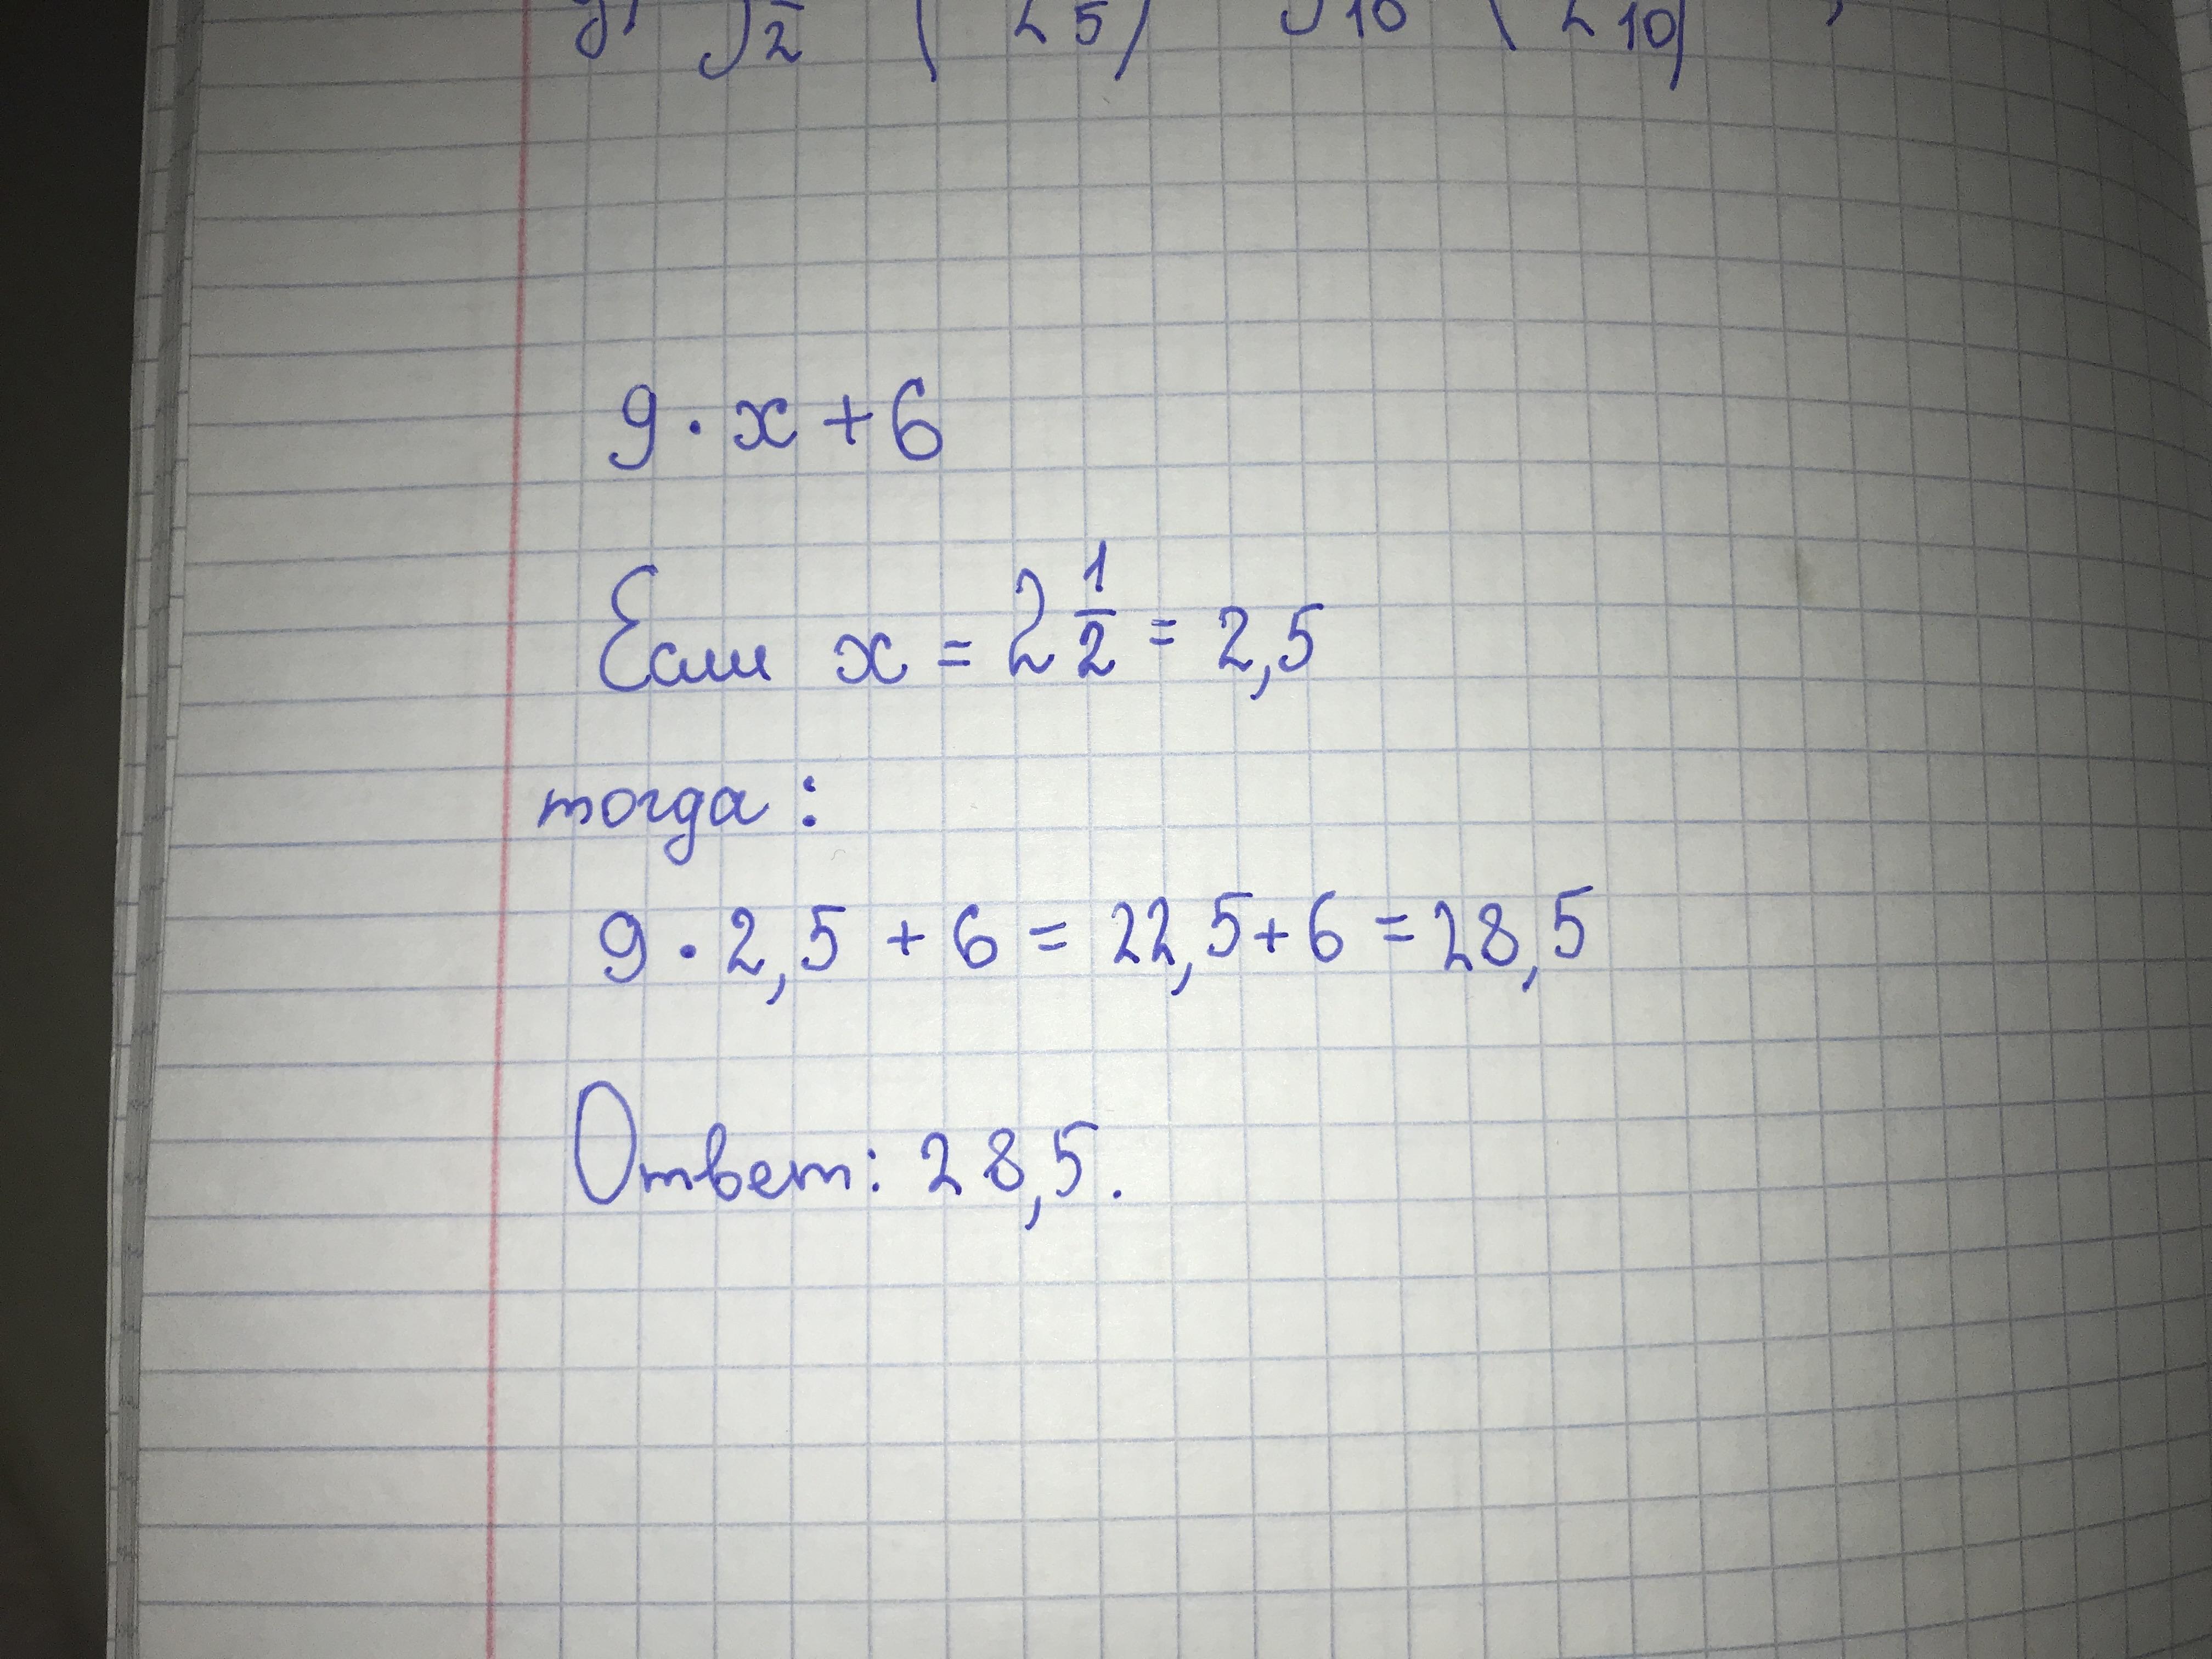 9 · x + 6
Если x = 2 1/2 = 2,5
тогда :
9 · 2,5 + 6 = 22,5 + 6 = 28,5
Ответ: 28,5.